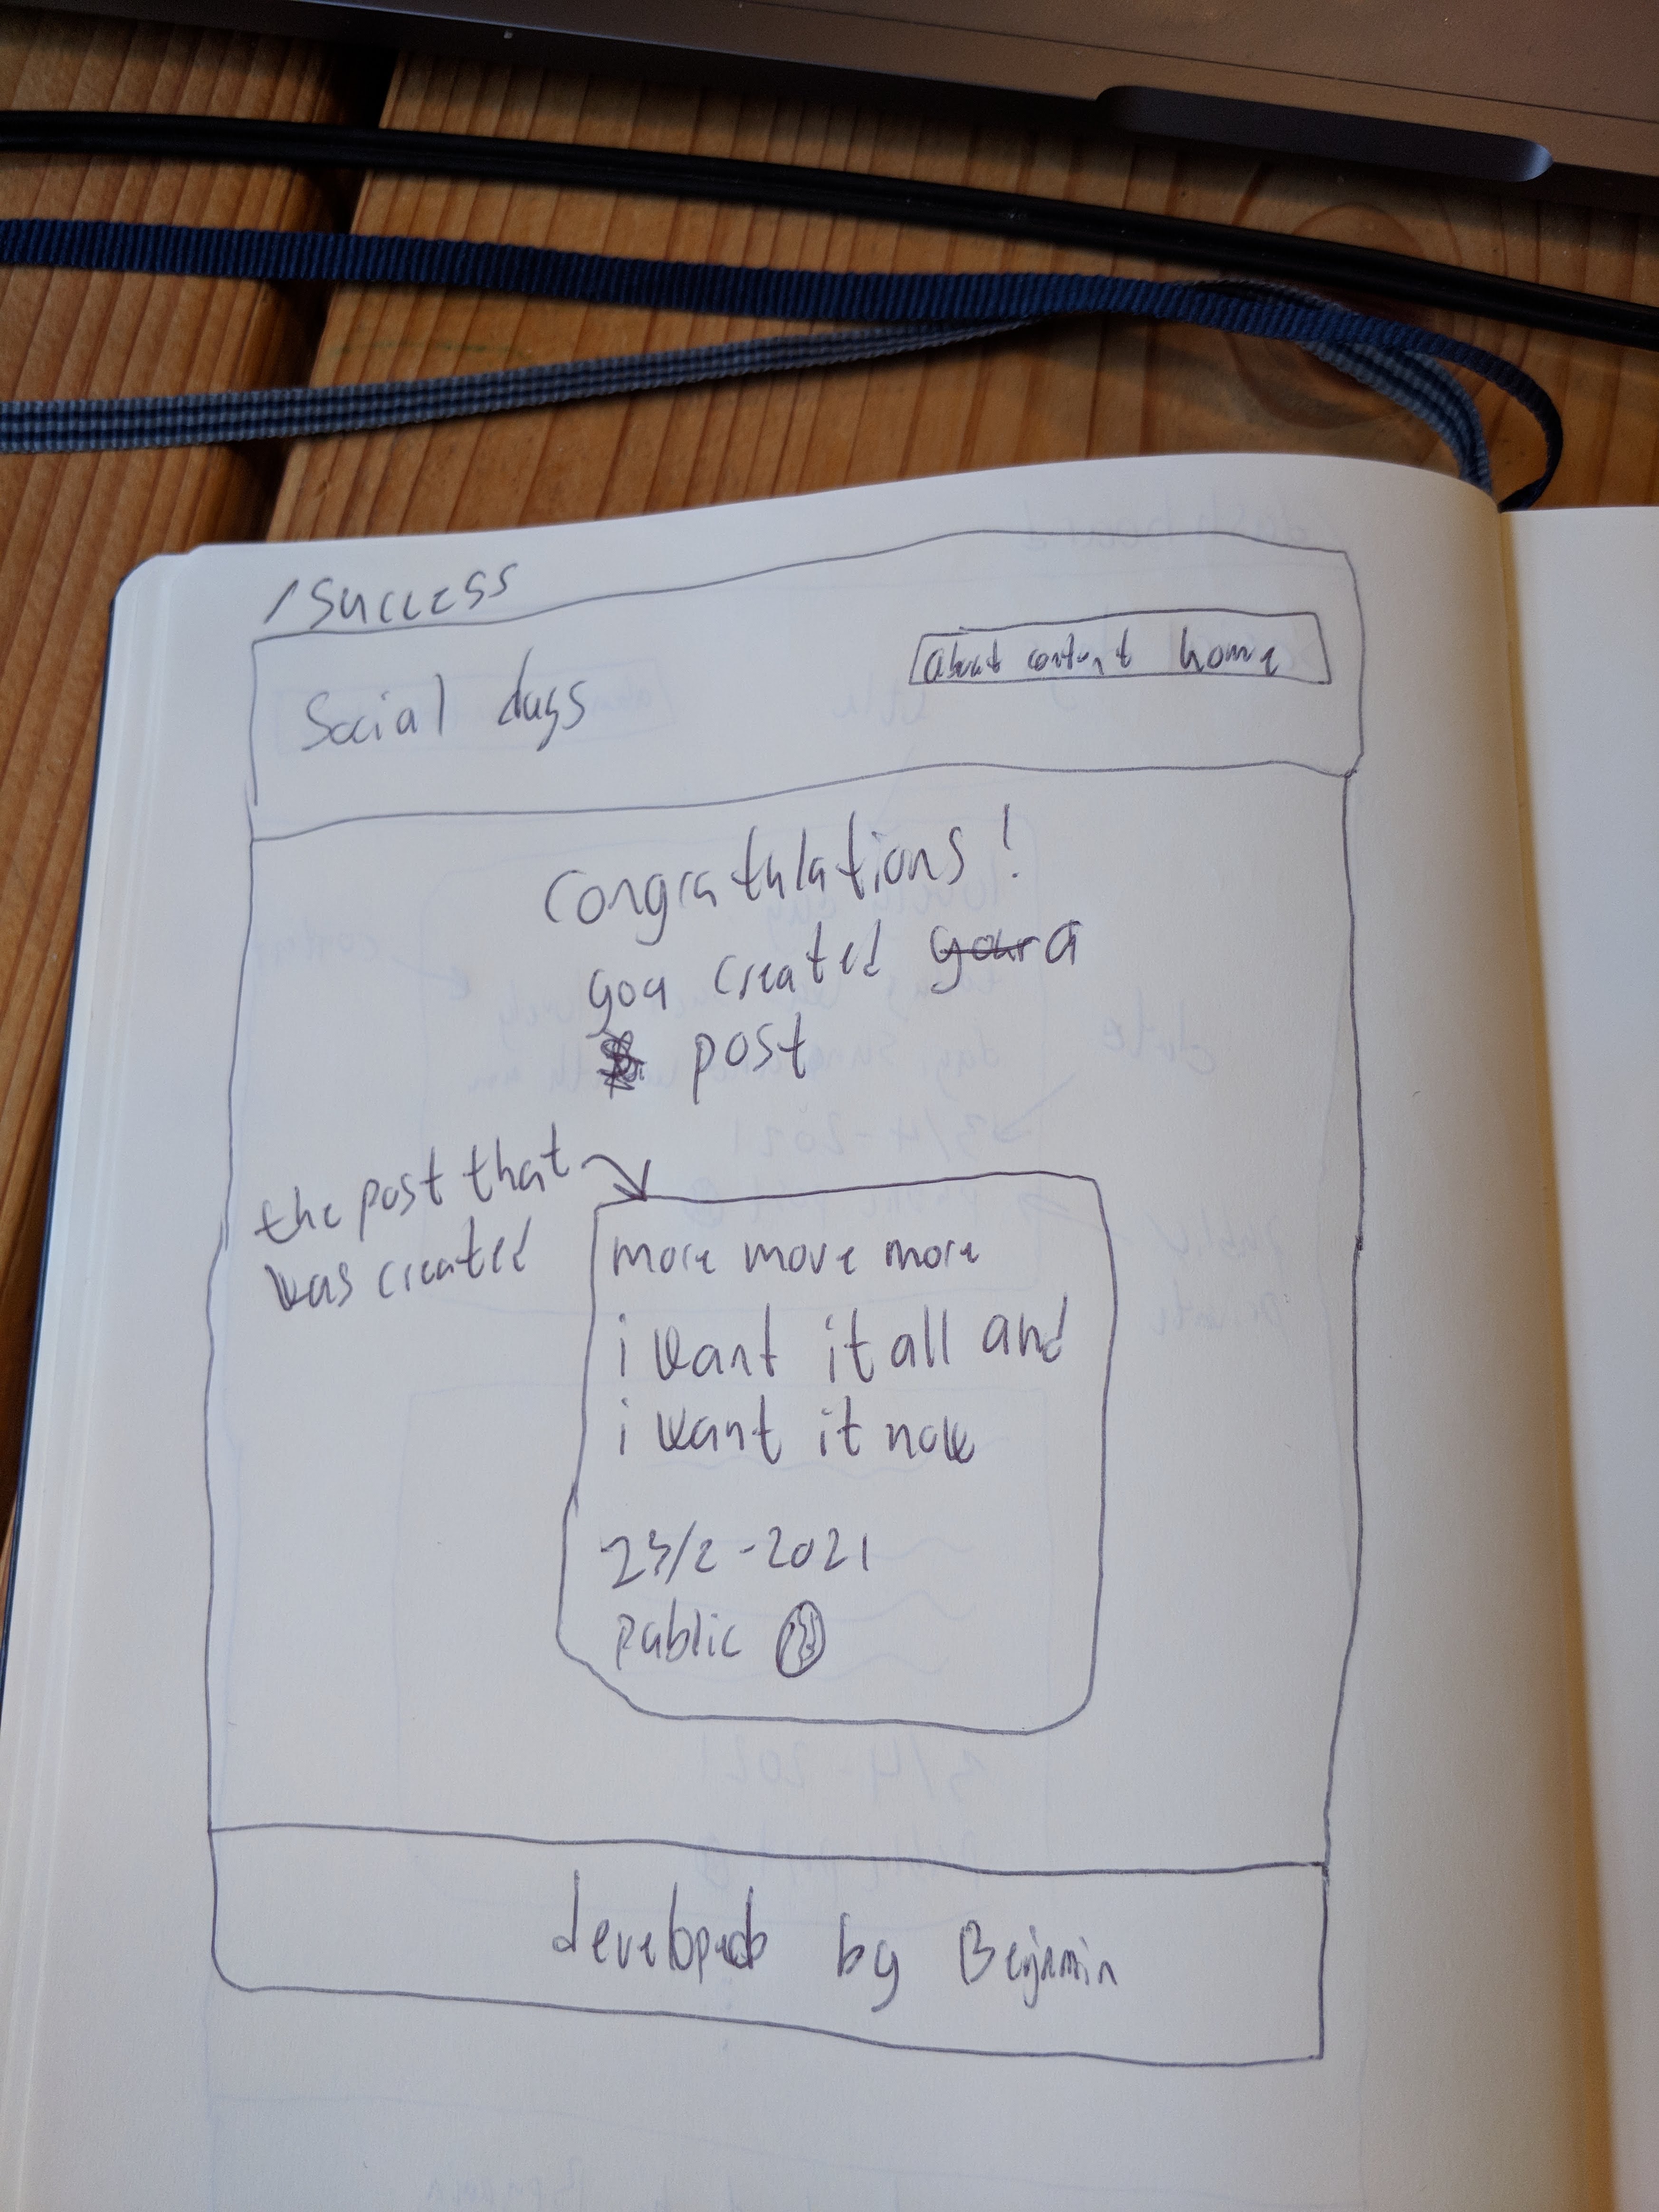 /success
Social days
about content home
Congratulations!
you created your a
post
the post that
was created
more more more
i want it all and
i want it now
23/2-2021
public
developed by Benjamin